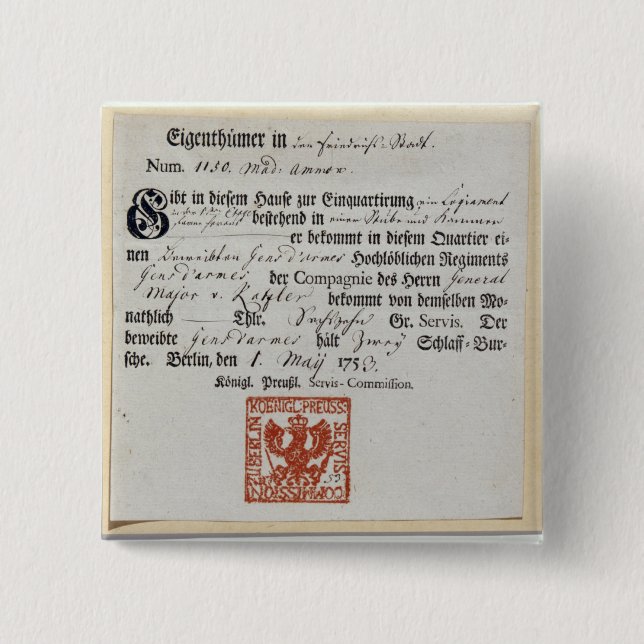 Eigenthümer in der Friedrichs-Stadt.
Num. 1150. Mad: Ammon.
Gibt in diesem Hause zur Einquartirung ein Logiament
bestehend in einer Stube und Kammer
er bekommt in diesem Quartier ei-
nen Beweibten Gens d'armes Hochlöblichen Regiments
Gens d'armes der Compagnie des Herrn General
Major v. Katzler bekommt von demselben Mo-
nathlich Thlr. Sechszehn Gr. Servis. Der
beweibte Gensdarmes hält Zwey Schlaff-Bur-
sche. Berlin, den 1. Maij 1753.
Königl. Preußl. Servis-Commission.
KOENIGL: PREUSS: SERVIS COMMISSION ZU BERLIN
53